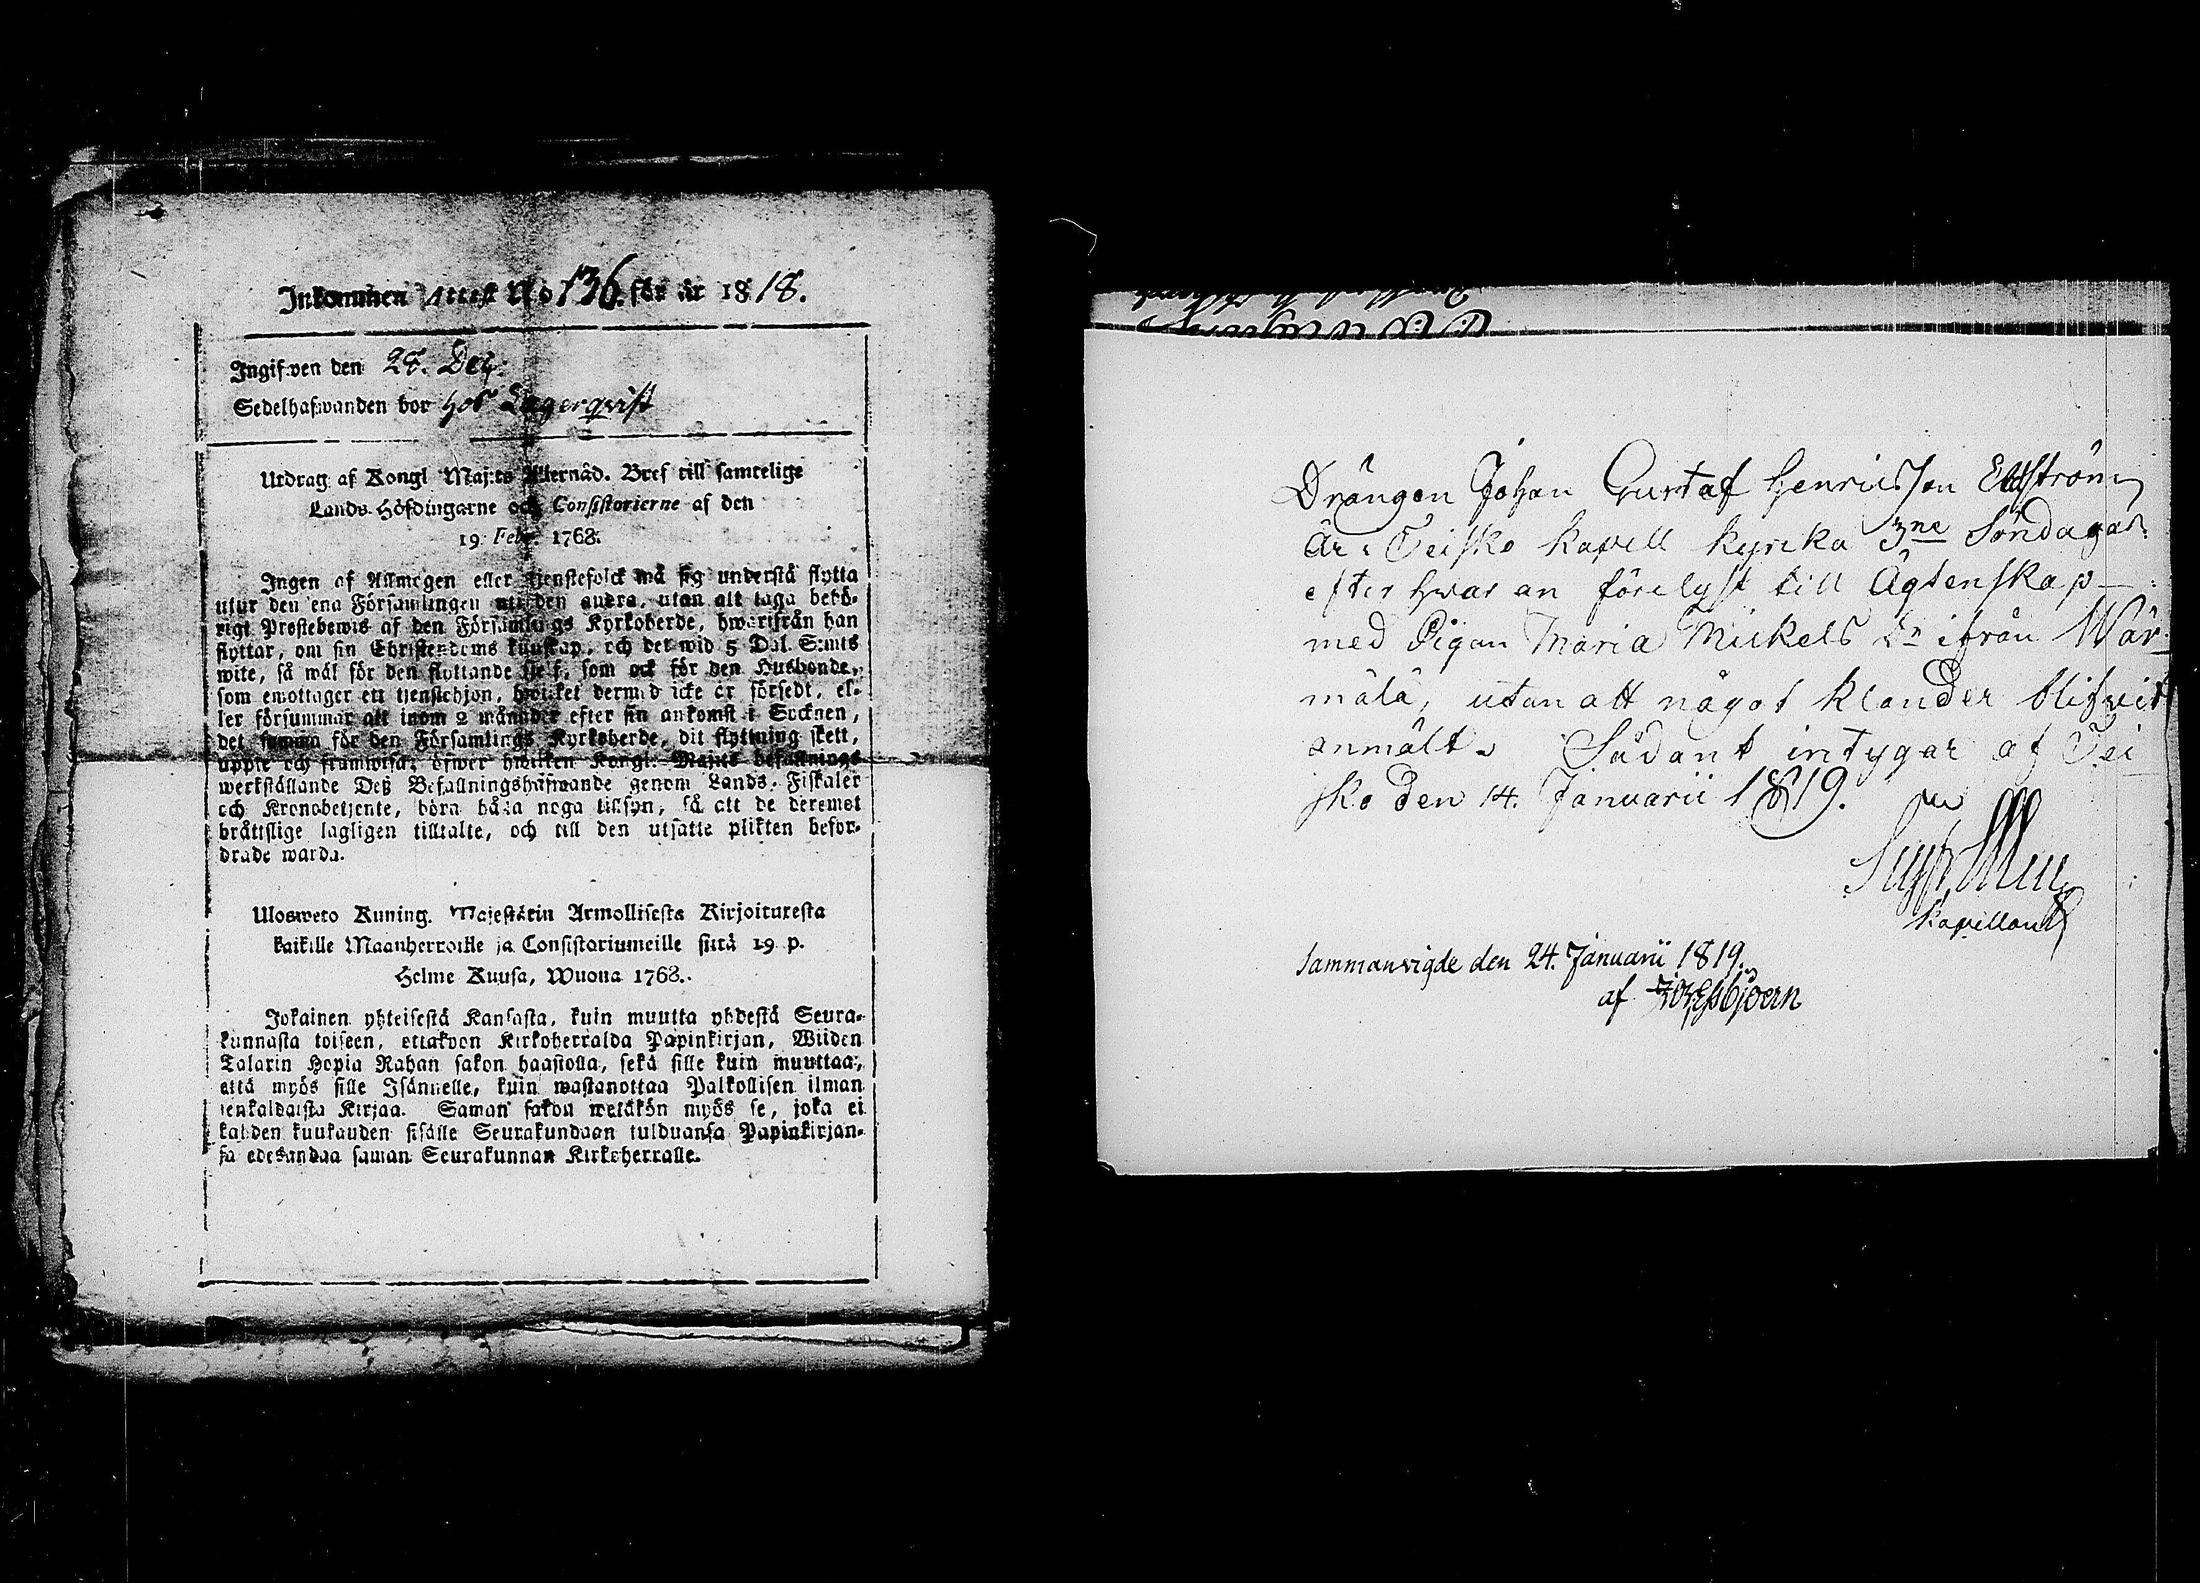 Inkommen Attest No 136. för år 1818.
Ingifwen den 28. Dec.
Sedelhafwanden bor hos Lagerqvist
Utdrag af Kongl Maj:ts Allernåd. Bref till samtelige
Lands-Höfdingarne och Consistorierne af den
19 Febr. 1768.
Ingen af Allmogen eller tjenstefolck må sig understå flytta
utur den ena Församlingen uti den andra, utan att taga behö-
rigt Prestebewis af den Församlings Kyrkoherde, hwarifrån han
flyttar, om sin Christendoms kunskap, och det wid 5 Dal. S:mts
wite, så wäl för den flyttande sjelf, som ock för den Husbonde,
som emottager ett tjenstehjon, hwilket dermed icke är försedt, el-
ler försummar att inom 2 månader efter sin ankomst i Socknen,
det samma för den Församlings Kyrkoherde, dit flyttning skett,
uppte och framwisa; öfwer hwilken Kongl. Maj:ts befallnings
werkställande Deß Befallningshafwande genom Lands-Fiskaler
och Kronobetjente, böra båra noga tillsyn, så att de deremot
bråttslige lagligen tilltalte, och till den utsatte plikten befor-
drade warda.
Uloswето Kuning. Majestätin Armollisesta Kirjoituxesta
kaikille Maanherroille ja Consistoriumeille siitä 19 p.
Helme Kuusa, Wuonа 1768.
Jokainen yhteisestä Kansasta, kuin muutta yhdestä Seura-
kunnasta toiseen, ottakoon Kirkoherralda Papinkirjan, Wiiden
Talarin Hopia Rahan sakon haastolla, sekä sille kuin muuttaa,
että myös sille Isännelle, kuin wastanottaa Palkollisen ilman
senkaldaista Kirjaa. Saman sakon wetäkön myös se, joka ei
kahden kuukauden sisälle Seurakundaan tulduansa Papinkirjan-
sa edesandaa saman Seurakunnan Kirkoherralle.
Drängen Johan Gustaf Henricsson Ekström
är i Teisko Kapell kyrka 3ne Söndagar
efter hwar an förelyst till Ägtenskap
med Pigan Maria Mickels Dr ifrån Wär-
mälä, utan att något klander blifvit
anmält. Sådant intygar af Tei
sko den 14. Januarii 1819.
Kapellan
Sammanvigde den 24. Januarii 1819.
af Essbjoern